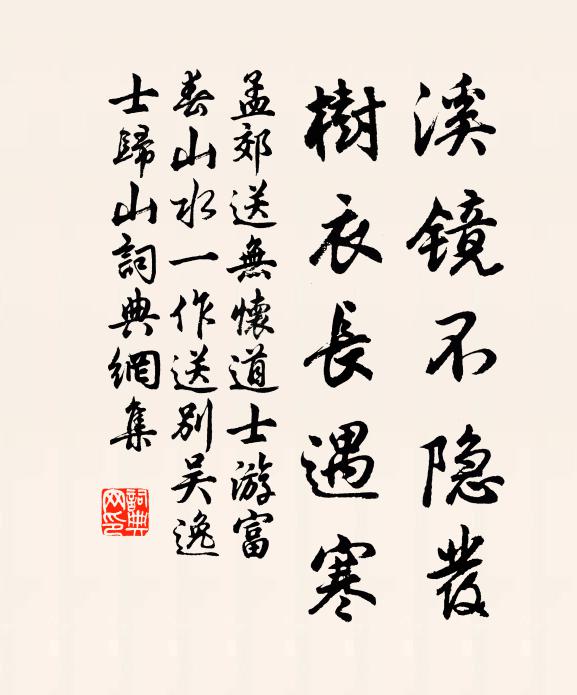 溪镜不隐发
樹衣長遇寒
孟郊送無懷道士游富
春山水一作送别吴逸
士歸山詞典網集
詞典网印